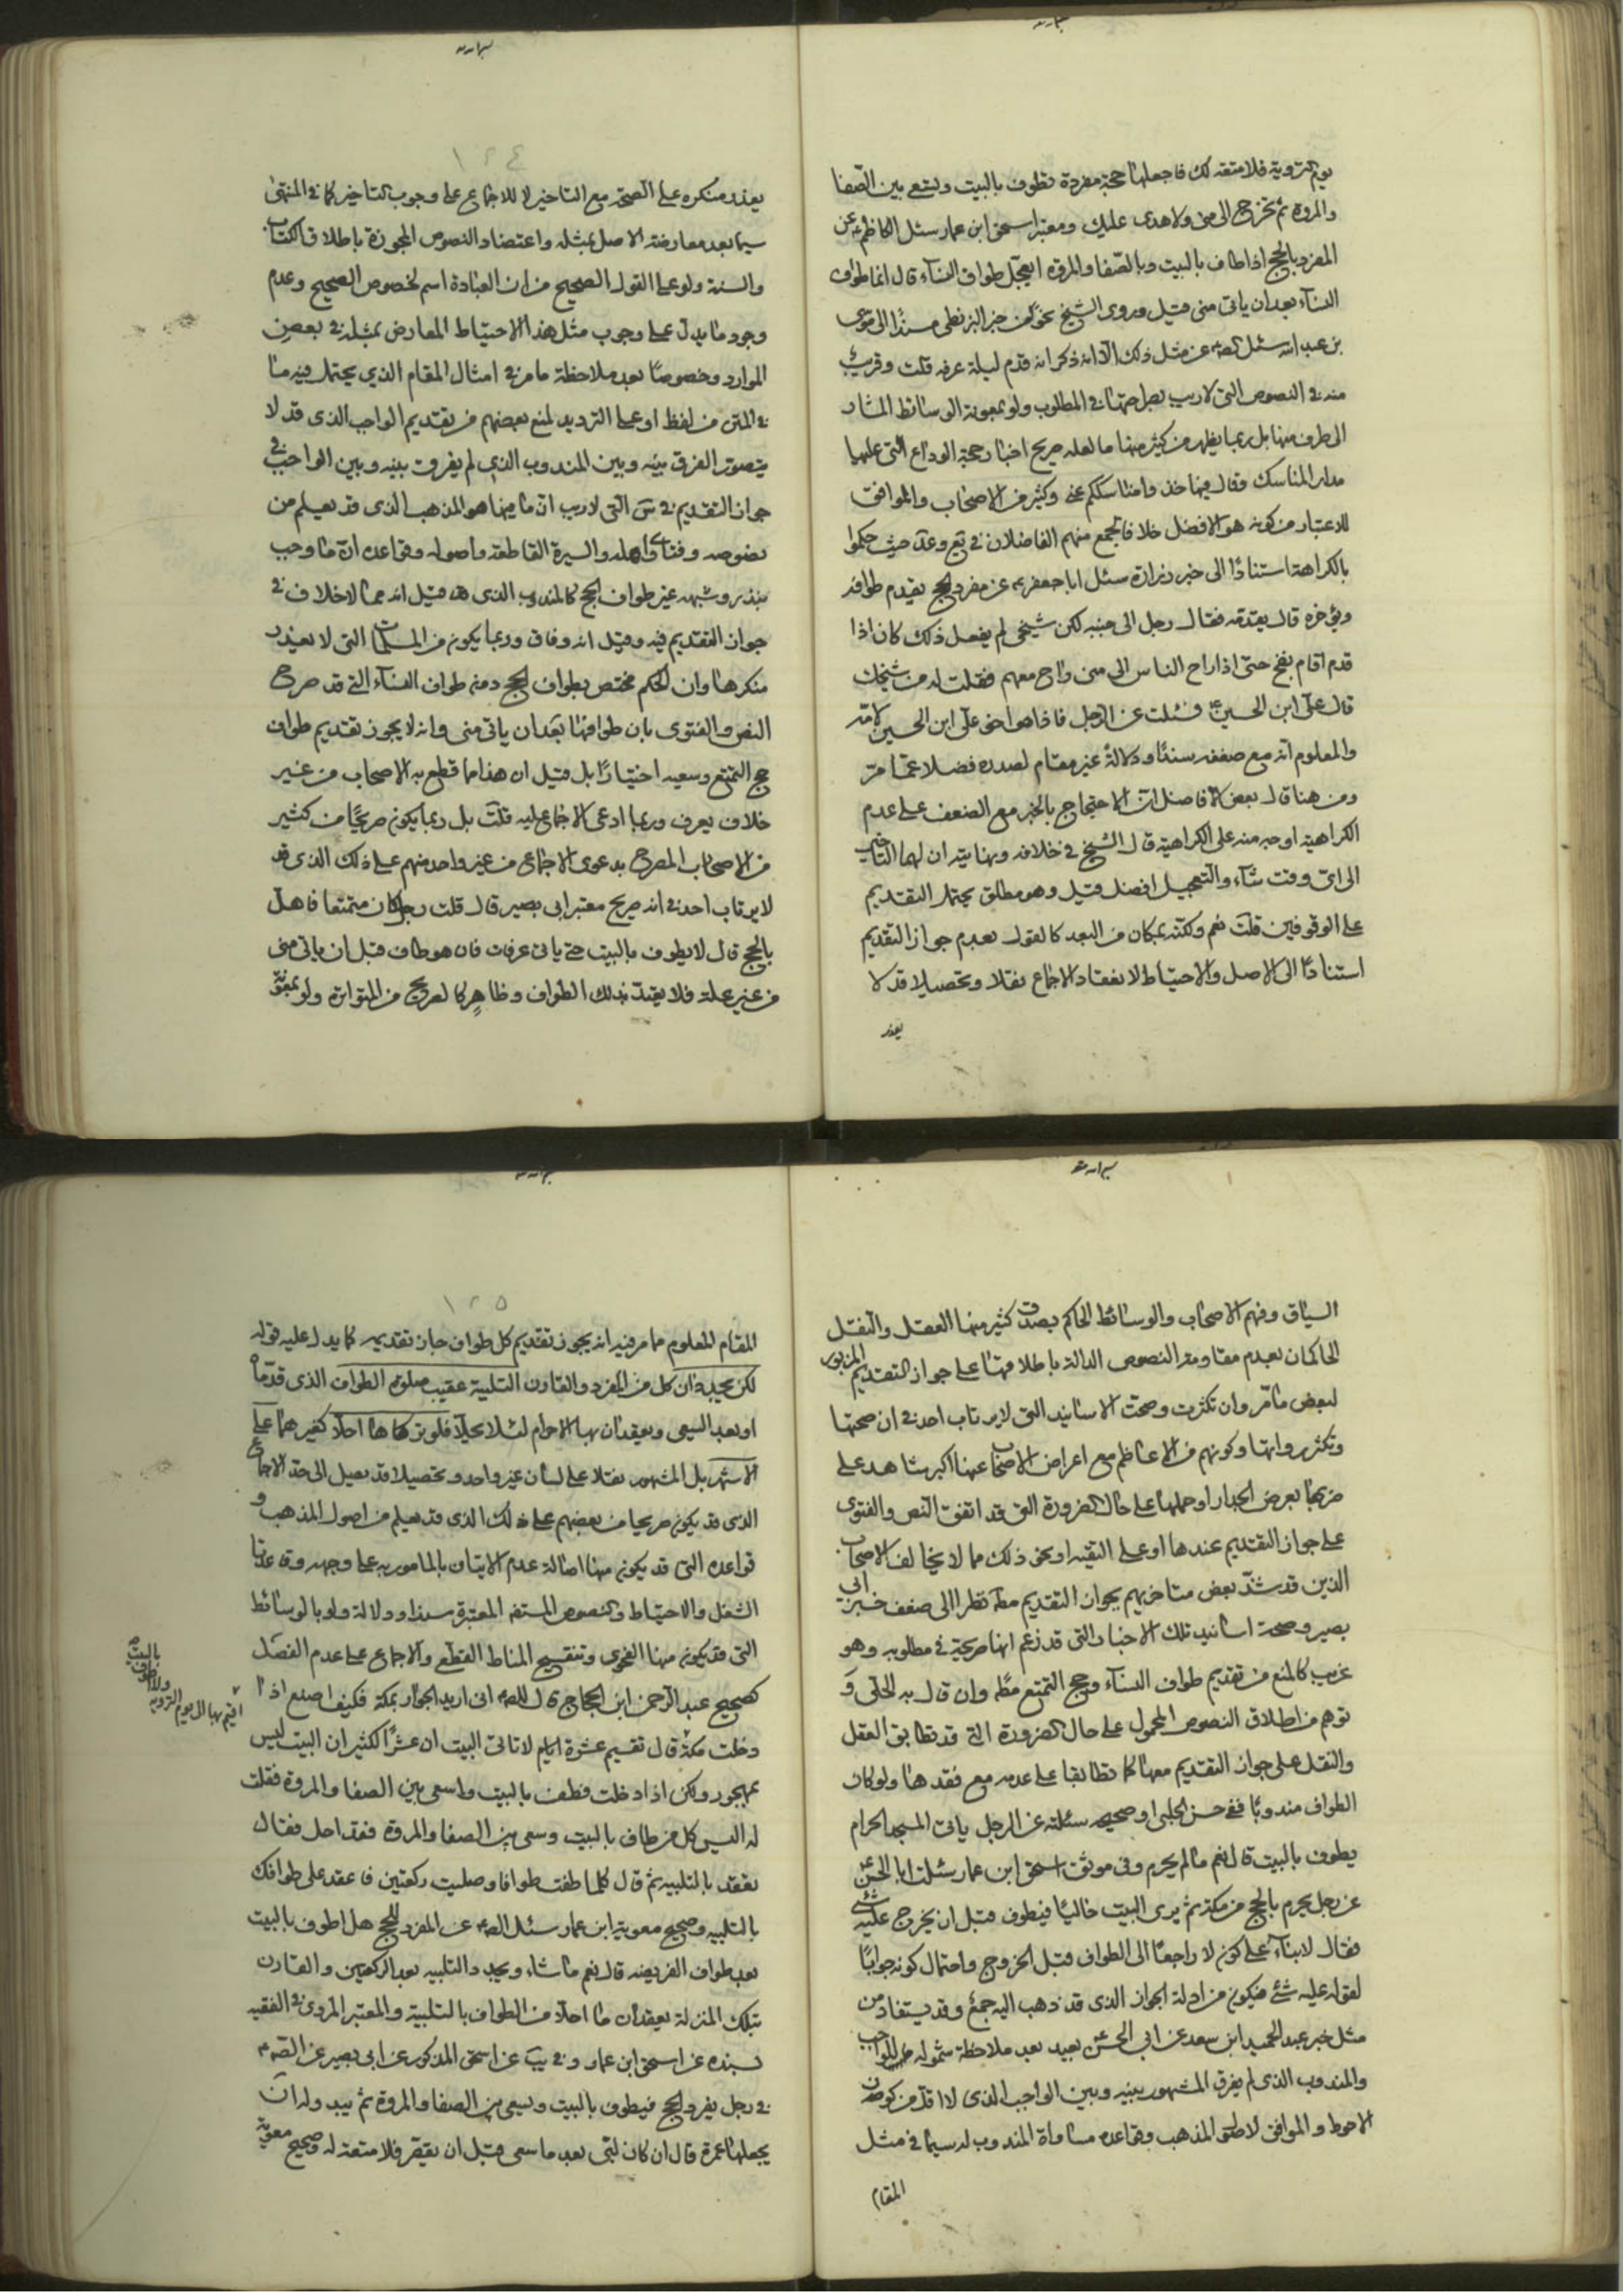 يوم التروية فلا متعة لك فاجعلها حجة مفردة تطوف بالبيت وتسعى بين الصفا
والمروة ثم تخرج الى منى ولا هدى عليك ومعتبر اسحق ابن عمار سئل الكاظم عن
المفرد بالحج اذا طاف بالبيت وبالصفا والمروة ايعجل طواف النساء قال انما طواف
النساء بعد ان ياتى منى قيل وروى الشيخ نحوًا من خبر البزنطى مسندًا الى موسى
بن عبد الله سئل الصم عن مثل ذلك الا انه ذكر انه قدم ليلة عرفه قلت وقريب
منه فى النصوص التى لا ريب بصراحتها فى المطلوب ولو بمعونة الوسائط المشار
الى طرف منها بل ربما يظهر من كثير منها ما لعله صريح اخبار حجة الوداع التى عليها
مدار المناسك وقال فيها خذوا مناسككم عنى وكثير من الاصحاب والموافق
للاعتبار من كونه هو الافضل خلافا لجمع منهم الفاضلان فى يع وعد حيث حكموا
بالكراهة استنادًا الى خبر زرارة سئل ابا جعفر عن مفرد الحج يقدم طوافه
ويؤخره قال يقدمه فقال رجل الى جنبه لكن شيخى لم يفعل ذلك كان اذا
قدم اقام بفخ حتى اذا راح الناس الى منى راح معهم فقلت له من شيخك
قال على ابن الحسين فسئلت عن الرجل فاذا هو اخو على ابن الحسين لامه
والمعلوم انه مع ضعفه سندًا ودلالةً غير مقام لصدره فضلا عما مر
ومن هنا قال بعض الافاضل ان الاحتجاج بالخبر مع الضعف على عدم
الكراهية اوجه منه على الكراهية قال الشيخ فى خلافه ونهايته ان لهما التاخير
الى اى وقت شاء والتعجيل افضل قيل وهو مطلق يحتمل التقديم
على الوقوفين قلت نعم ولكنه بمكان من البعد كالقول بعدم جواز التقديم
استنادًا الى الاصل والاحتياط لانعقاد الاجماع نقلا وتحصيلا قد لا
يعذر
١٢٤
يعذر منكره على الصحة مع التاخير لا للاجماع على وجوب التاخير كما فى المنتهى
سيما بعد معارضة الاصل بمثله واعتضاد النصوص المجوزة باطلاق الكتاب
والسنة ولو على القول الصحيح من ان العبادة اسم لخصوص الصحيح وعدم
وجود ما يدل على وجوب مثل هذا الاحتياط المعارض بمثله فى بعض
الموارد وخصوصًا بعد ملاحظة ما مر فى امثال المقام الذي يحتمل فيه ما
فى المتن من لفظ او على الترديد لمنع بعضهم من تقديم الواجب الذى قد لا
يتصور الفرق بينه وبين المندوب الذي لم يفرق بينه وبين الواجب فى
جواز التقديم فى س التى لا ريب ان ما فيها هو المذهب الذى قد يعلم من
نصوصه وفتاوى اهله والسيرة القاطعة واصوله وقواعده ان ما وجب
بنذر وشبهه غير طواف الحج كالمندوب الذى قد قيل انه مما لا خلاف فى
جواز التقديم فيه وقيل انه وفاق وربما يكون من المسلمات التى لا يعذر
منكرها وان الحكم مختص بطواف الحج دون طواف النساء التى قد صرح
النص والفتوى بان طوافها بعد ان ياتى منى وانه لا يجوز تقديم طواف
حج التمتع وسعيه اختيارًا بل قيل ان هذا مما قطع به الاصحاب من غير
خلاف يعرف وربما ادعى الاجماع عليه قلت بل ربما يكون صريحًا من كثير
من الاصحاب المصرح بدعوى الاجماع من غير واحد منهم على ذلك الذى قد
لا يرتاب احد فى انه صريح معتبر ابى بصير قال قلت رجل كان متمتعا فاهل
بالحج قال لا يطوف بالبيت حتى ياتى عرفات فان هو طاف قبل ان ياتى منى
من غير علة فلا يعتد بذلك الطواف وظاهر كالصريح من المتواترة ولو بمعونة
السياق وفهم الاصحاب والوسائط الحاكم بصدق كثير منها العقل والنقل
الحاكمان بعدم مقاومة النصوص الدالة باطلاقها على جواز التقديم المزبور
لبعض ما مر وان تكثرت وصحت الاسانيد التى لا يرتاب احد فى ان صحتها
وتكثر رواتها وكونهم من الاعاظم مع اعراض الاصحاب عنها اكبر شاهد على
ضربها بعرض الجدار او حملها على حال الضرورة التى قد اتفق النص والفتوى
على جواز التقديم عندها او على التقيه او نحو ذلك مما لا يخالف الاصحاب
الذين قد شذ بعض متاخريهم بجواز التقديم مط نظرا الى ضعف خبر ابى
بصير وصحة اسانيد تلك الاخبار التى قد زعم انها صريحة فى مطلوبه وهو
غريب كالمنع من تقديم طواف النساء وحج التمتع مط وان قال به الحلى و
توهم من اطلاق النصوص المحمول على حال الضرورة التى قد تطابق العقل
والنقل على جواز التقديم معها كما تطابقا على عدمه مع فقدها ولو كان
الطواف مندوبًا ففى حسن الحلبى او صحيحه سئلته عن الرجل ياتى المسجد الحرام
يطوف بالبيت قال نعم ما لم يحرم وفى موثق اسحق ابن عمار سئلت ابا الحسن
عن رجل يحرم بالحج من مكة ثم يرى البيت خاليًا فيطوف قبل ان يخرج عليه شئ
فقال لا بناء على كون لا راجعًا الى الطواف قبل الخروج واحتمال كونه جوابًا
لقوله عليه شئ فيكون من ادلة الجواز الذى قد ذهب اليه جمع وقد يستفاد من
مثل خبر عبد الحميد ابن سعد عن ابى الحسن بعيد بعد ملاحظة شموله للواجب
والمندوب الذى لم يفرق المشهور بينه وبين الواجب الذى لا اقل من كونه
الاحوط والموافق لاصول المذهب وقواعده مساواة المندوب له سيما فى مثل
المقام
١٢٥
المقام المعلوم مما مر فيه انه يجوز تقديم كل طواف جاز تقديمه كما يدل عليه قوله
لكن يجددان كل من المفرد والقارن التلبية عقيب صلوة الطواف الذى قدماه
او بعد السعى ويعقدان بها الاحرام لئلا يحلا فلو تركاها احلا كغيرهما على
الاشهر بل المشهور نقلا على لسان غير واحد وتحصيلا قد يصل الى حد الاجماع
الذى قد يكون صريحا من بعضهم على ذلك الذى قد يعلم من اصول المذهب و
قواعده التى قد يكون منها اصالة عدم الاتيان بالمامور به على وجهه وقاعدتا
الشغل والاحتياط والنصوص المستفيضة المعتبرة سندا ودلالة ولو بالوسائط
التى قد يكون منها الفحوى وتنقيح المناط القطعى والاجماع على عدم الفصل
كصحيح عبد الرحمن ابن الحجاج قال للصم انى اريد الجوار بمكة فكيف اصنع اذا
دخلت مكة قال تقيم عشرة ايام لا تاتى البيت ان عشرًا لكثير ان البيت ليس
بمهجور ولكن اذا دخلت فطف بالبيت واسعى بين الصفا والمروة فقلت
له اليس كل من طاف بالبيت وسعى بين الصفا والمروة فقد احل فقال
تعقد بالتلبيه ثم قال كلما طفت طوافا وصليت ركعتين فاعقد على طوافك
بالتلبيه وصحيح معوية ابن عمار سئل الصم عن المفرد للحج هل اطوف بالبيت
بعد طواف الفريضه قال نعم ما شاء ويجدد التلبيه بعد الركعتين والقارن
بتلك المنزلة يعقدان ما احلا من الطواف بالتلبية والمعتبر المروى فى الفقيه
بسنده عن اسحق ابن عمار وفى يب عن اسحق المذكور عن ابى بصير عن الصم
فى رجل يفرد الحج فيطوف بالبيت ويسعى بين الصفا والمروة ثم يبدو له ان
يجعلها عمرة قال ان كان لبى بعد ما سعى قبل ان يقصر فلا متعة له وصحيح معوية
اقيم بها الى يوم التروية
ولا اطوف
بالبيت